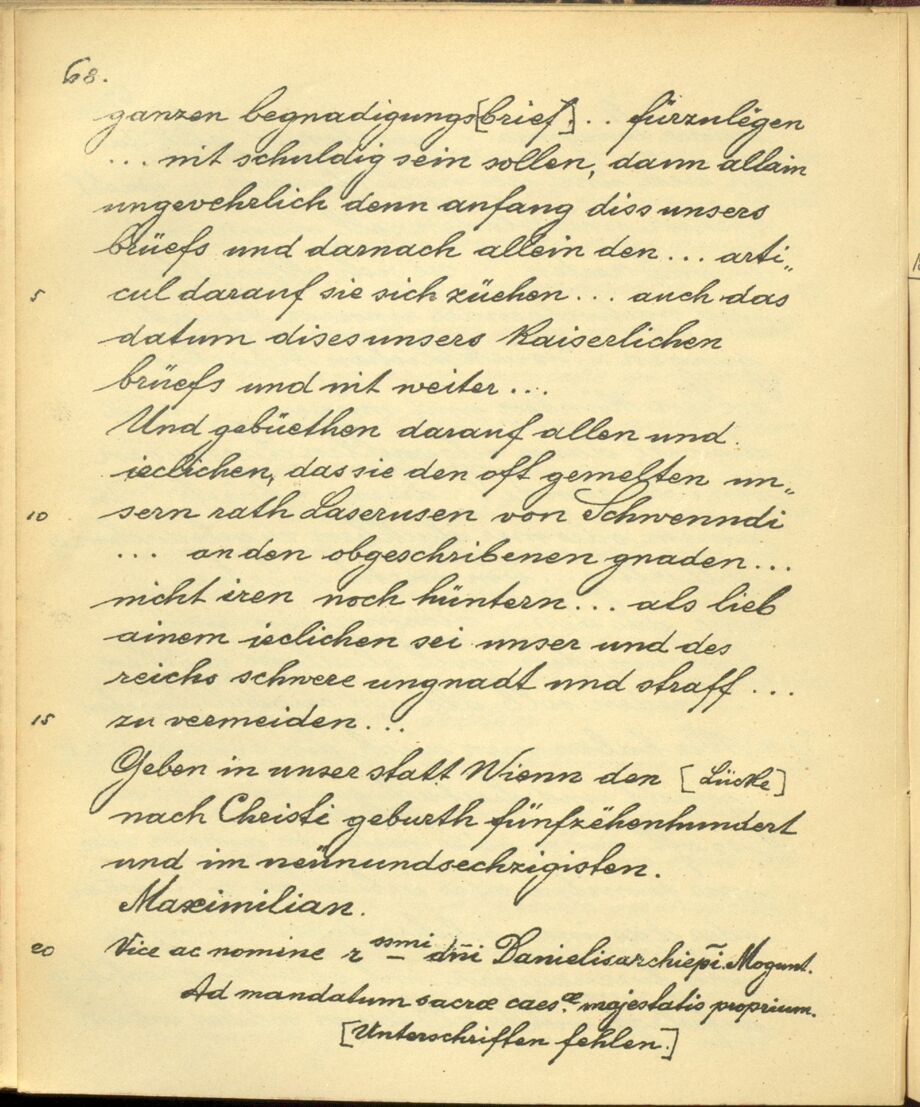 68.
ganzen begnadigungs[brief]... fürzulëgen
... nit schuldig sein sollen, dann allain
ungevehrlich denn anfang diss unsers
brüefs und darnach allein den ... arti„
5 cul darauf sie sich züehen ... auch das
datum dises unsers Kaiserlichen
brüefs und nit weiter ...
Und gebüethen darauf allen und
ieclichen, das sie den oft gemelten un„
10 sern rath Laserusen von Schwenndi
... an den obgeschribenen gnaden ...
nicht iren noch hüntern ... als lieb
ainem ieclichen sei unser und des
reichs schwere ungnadt und straff ...
15 zu vermeiden ...
Geben in unser statt Wienn den [Lücke]
nach Christi geburth fünfzëhenhundert
und im neünundsechzigisten.
Maximilian.
20 Vice ac nomine r ssmi dn̄i Danielis archiep̄i. Mogunt.
Ad mandatum sacræ caes.æ majestatis proprium.
[Unterschriften fehlen.]